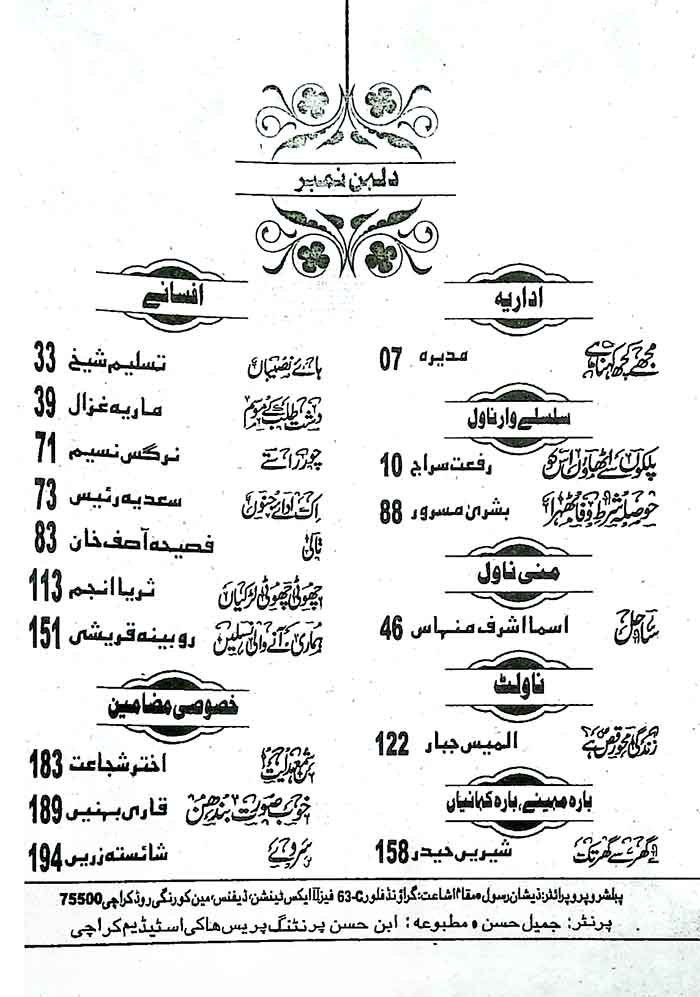 دلہن نمبر
اداریہ
مجھے کچھ کہنا ہے مدیرہ 07
سلسلے وار ناول
پلکوں سے اٹھاؤں اس کو رفعت سراج 10
حوصلہ شرط وفا ٹھہرا بشری مسرور 88
منی ناول
ساحل اسما اشرف منہاس 46
ناولٹ
زندگی محو رقص ہے المیس جبار 122
بارہ مہینے، بارہ کہانیاں
گھر سے گھر تک شیریں حیدر 158
افسانے
ہائے نصیباں تسلیم شیخ 33
دشت طلب کے موسم ماریہ غزال 39
چور راستے نرگس نسیم 71
اک ادائے جنوں سعدیہ رئیس 73
تائی فصیحہ آصف خان 83
چھوٹی چھوٹی لڑکیاں ثریا انجم 113
ہماری آنے والی نسلیں روبینہ قریشی 151
خصوصی مضامین
شمع ہدایت اختر شجاعت 183
خوب صورت بندھن قاری بہنیں 189
سروے شائستہ زریں 194
پبلشر و پروپرائٹر: ذیشان رسول مقام اشاعت: گراؤنڈ فلور C-63 فیز II ایکس ٹینشن، ڈیفنس، مین کورنگی روڈ کراچی 75500
پرنٹر: جمیل حسن • مطبوعہ: ابن حسن پرنٹنگ پریس ہاکی اسٹیڈیم کراچی